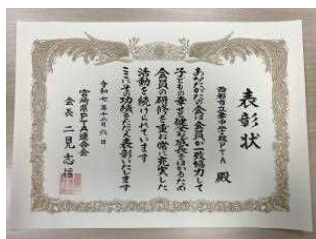 表彰状
西都市立妻中学校PTA 殿
あなたがたの会は会員が一致協力して
子どもの幸せと健全な成長をはかるため
会員の研修を重ね常に充実した
活動を続けられています
ここにその功績をたたえ表彰いたします
令和七年十二月六日
宮崎県PTA連合会
会長 二見志信